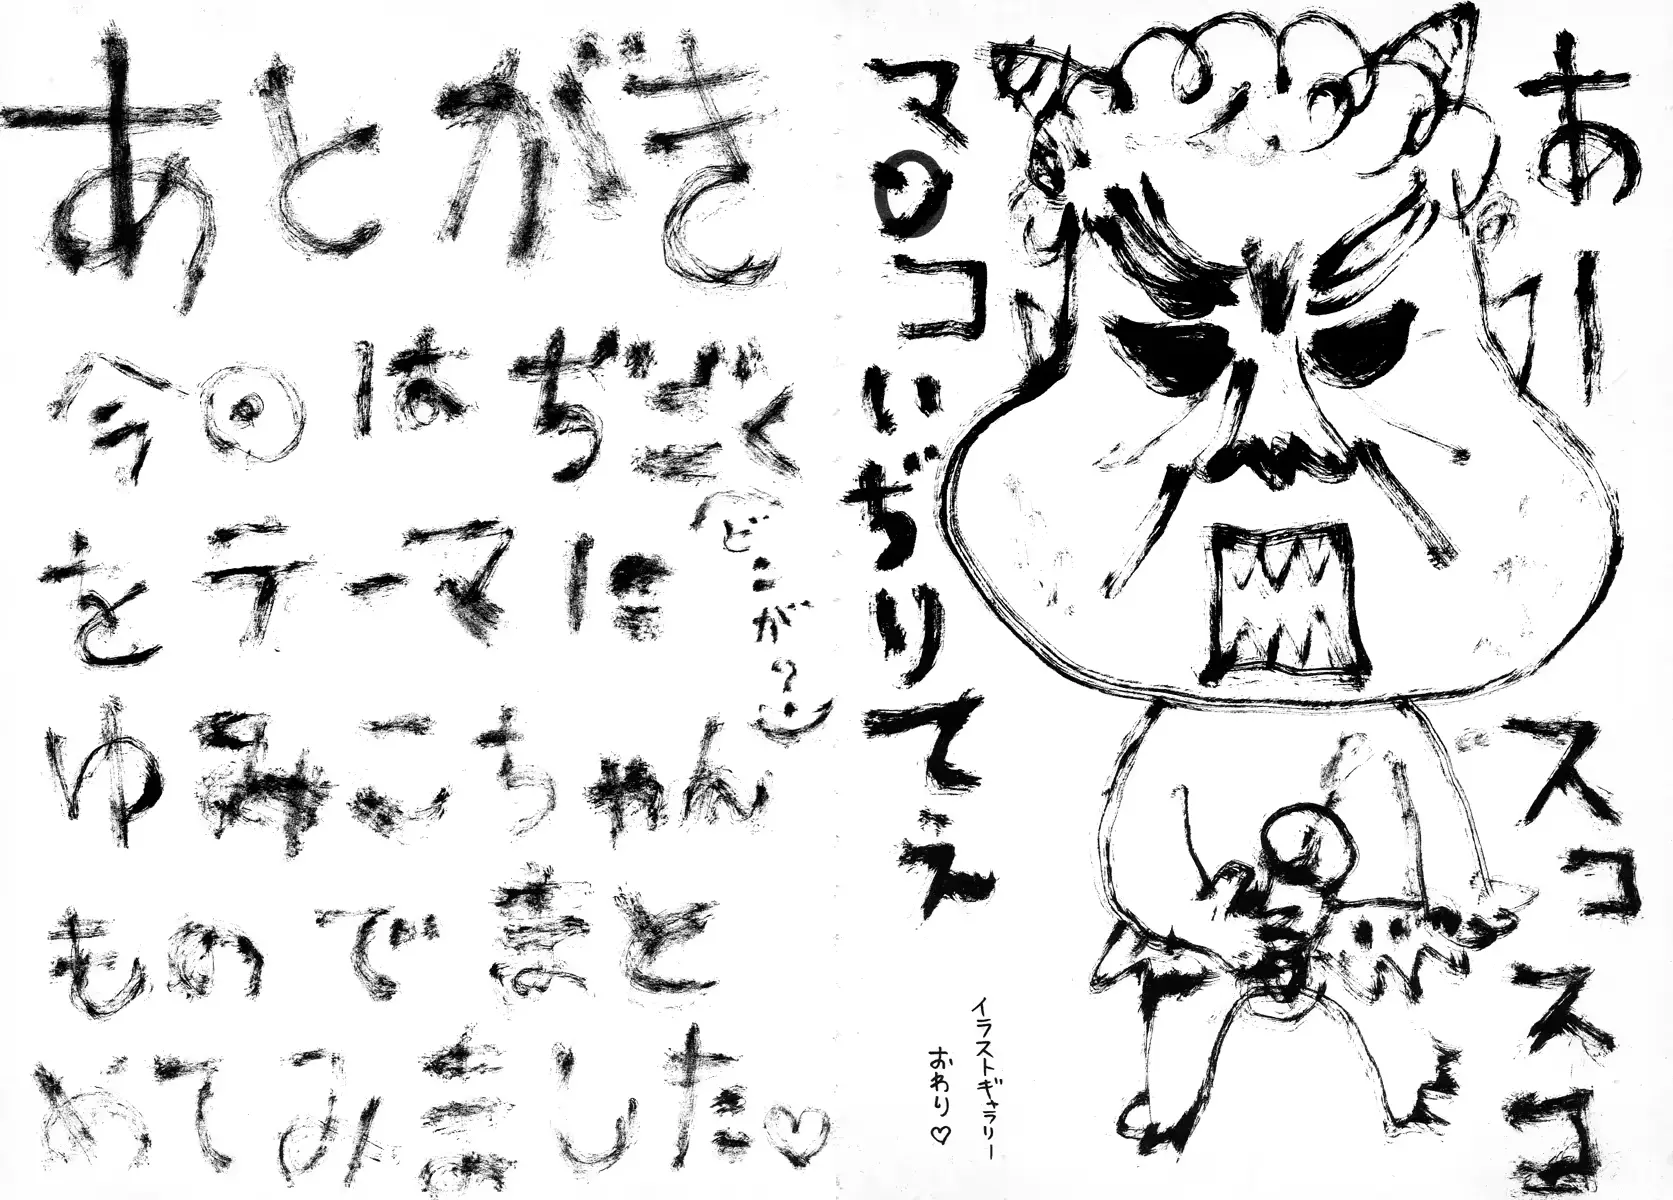 あー
スコ
スコ
マ○コいぢりてぇ
イラストギャラリー
おわり♡
あとがき
今回はぢごく
をテーマに
(どこが?)
ゆみこちゃん
ものでまと
めてみました♡